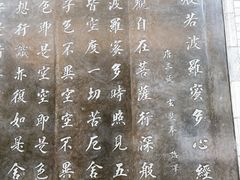 般若波羅蜜多心經
唐三藏 玄奘奉
觀自在菩薩行深般
波羅蜜多時照見五
皆空度一切苦厄舍
子色不異空空不異
色即是空空即是色
想行識亦復如是舍